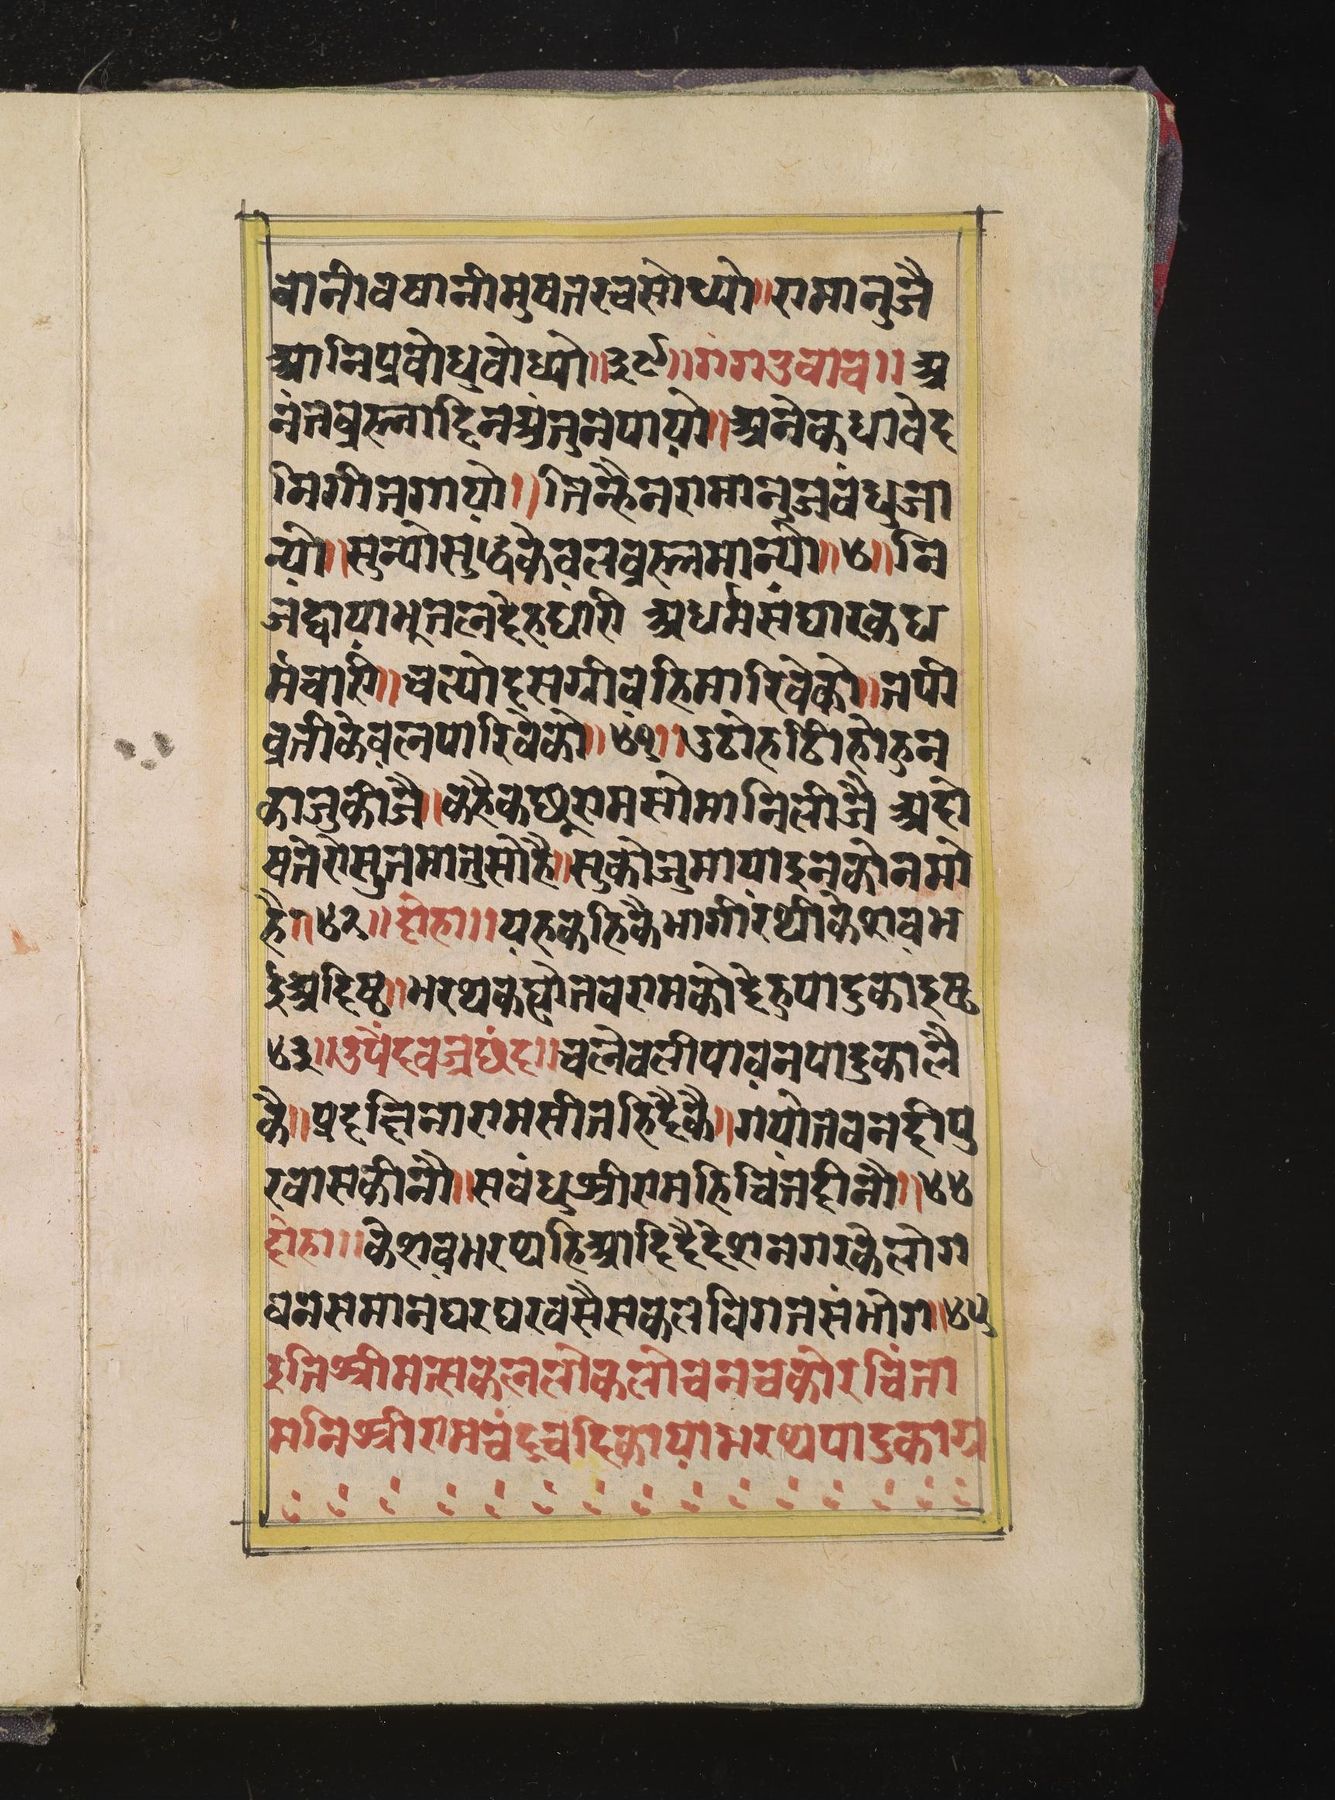 बानीवषानीमुषतत्वसोध्यो॥रामानुजै
आनिप्रवोधुवोध्यो॥३९॥गंगउवाच॥अ
नंतब्रह्मादिनअंतुनपायो॥अनेकधावेद
निगीतगायो॥जिन्हैनरामानुजवंधुजा
न्यो॥सुन्योसुध्दकेवलब्रह्ममान्यो॥४॥नि
जेछ्यायाभूतलदेहधारी अधर्मसंघारकध
र्मचारी॥चल्योदसग्रीवहिमारिवेको॥तपी
व्रतीकेवलपारिवेको॥४१॥उठोहठीहोहुन
काजुकीजै॥कहैकछूरामसोमानिलीजै अहो
षनेरोसुतमातुसोहै॥सुकोनुमायाइनकोनमो
है॥४२॥दोहा॥यहकहिकैभागीरथीकेशवभ
ईअदिष्ट॥भरथकह्यौतवरामकोदेहुपादुकाइष्ट
४३॥उपेंद्रवज्रछंद॥चलेवलीपावनपादुकालै
कै॥प्रदछिनारामसीतहिदैकै॥गयेतेवनदीपु
रवासकीनौ॥सवंधुश्रीरामहिचिंतदीनौ॥४४
दोहा॥केशवभरथहिआदिदैदेशनगरकेलोग
वनसमानघरघरवसैसकलविगतसंभोग॥४५
इतिश्रीमत्सकललोकलोचनचकोरचिंता
मनिश्रीरामचंद्रचंद्रिकायाभरथपादुकाग्र